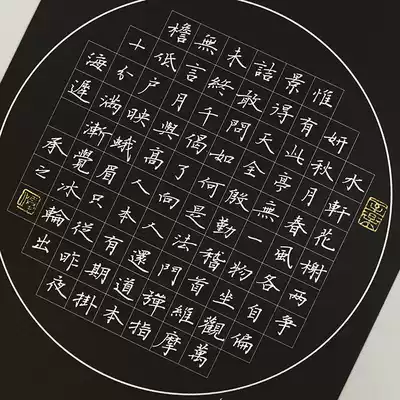 水軒花榭兩爭
妍秋月春風各自偏
惟有此亭無一物坐觀萬
景得天全殷勤稽首維摩
詰敢問如何是法門彈指
未終千偈了向人還道本
無言月與高人本有期掛
檐低戶映蛾眉只從昨夜
十分滿漸覺冰輪出
海遲香之